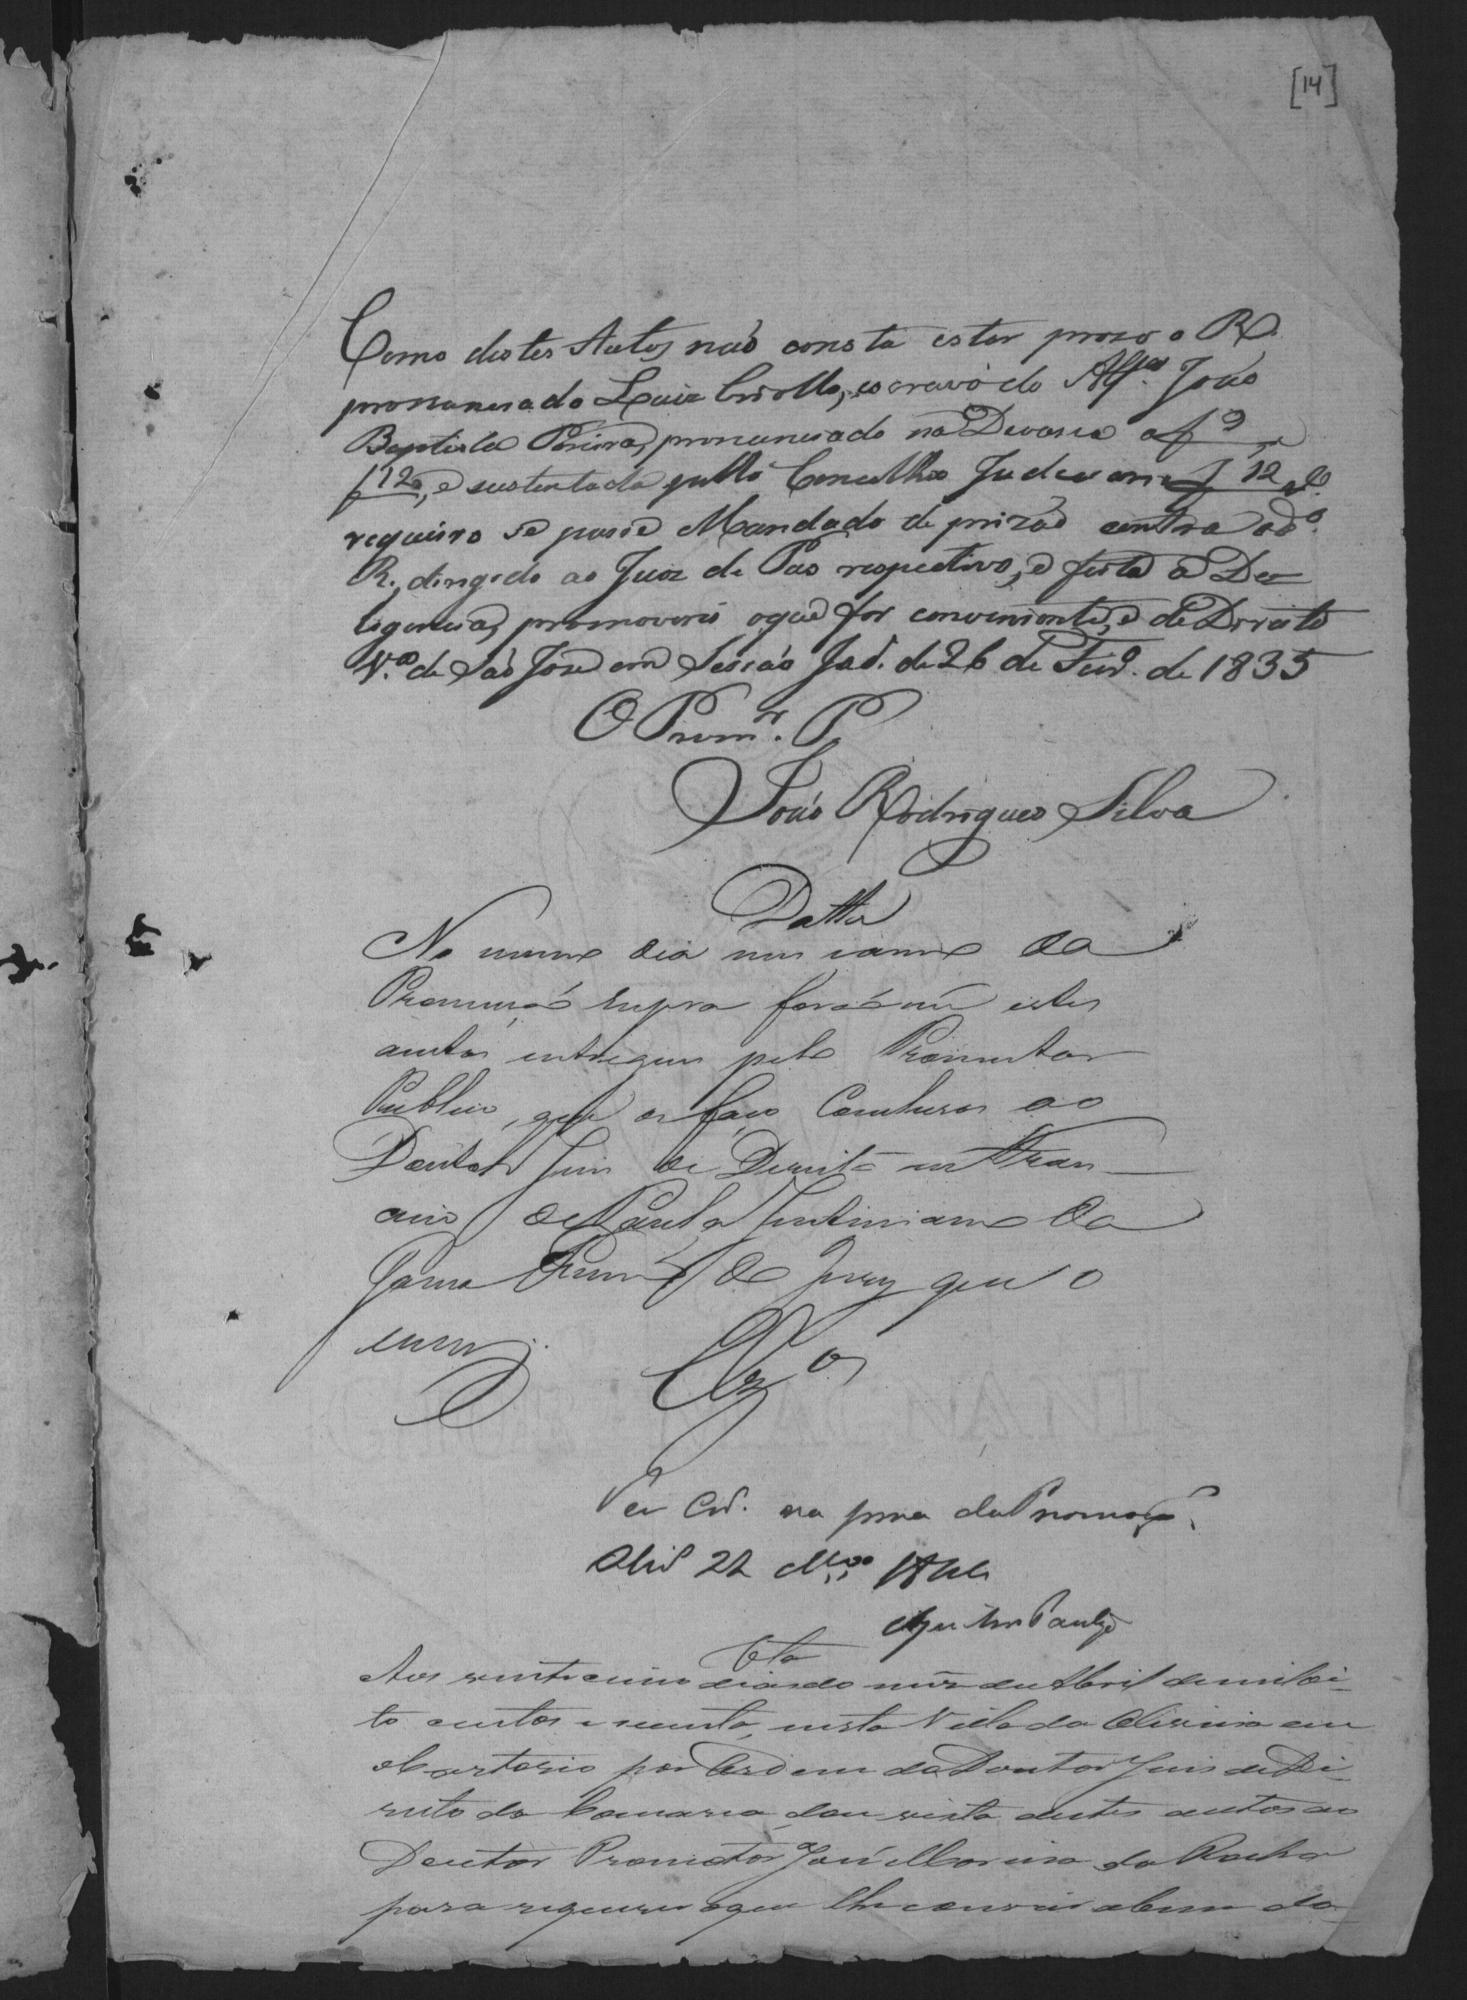 [14]
Como destes Autos naõ consta estar prezo o R.
pronunciado Luiz Criollo, escravo do Alfes. Joaõ
Baptista Pereira, pronunciado na Devasa a f
f 12, e sustentada pello Concelho Judiciario f 12
requeiro se passe Mandado de prizaõ contra o do.
R., dirigido ao Juiz de Pas respectivo, e feita a De
ligencia, promoverei o que for conveniente, e de Direito
Va. de Saõ José em Sessaõ Jud. de 26 de Fevo. de 1835
O Promr. P.
Joaõ Rodrigues Silva
Datta
No mesmo dia mes e anno da
Promoçaõ supra foraõ me estes
autos entregues pelo Promotor
Publico, que os faço Concluzos ao
Doutor Juiz de Direito Fran
cisco de Paula Justiniano da
Gama de Jury que o
escrevy.
Clzos
na da Promoção.
22 
Vta
Aos vinte cinco dias do mez de Abril de mil oi-
to centos e secenta, nesta Villa da Oliveira em
Cartorio por Ordem do Doutor Juis de Di-
reito da Comarca, dou vista destes autos ao
Doutor Promotor José Moreira da Rocha
para requerer o que lhe convier a bem da